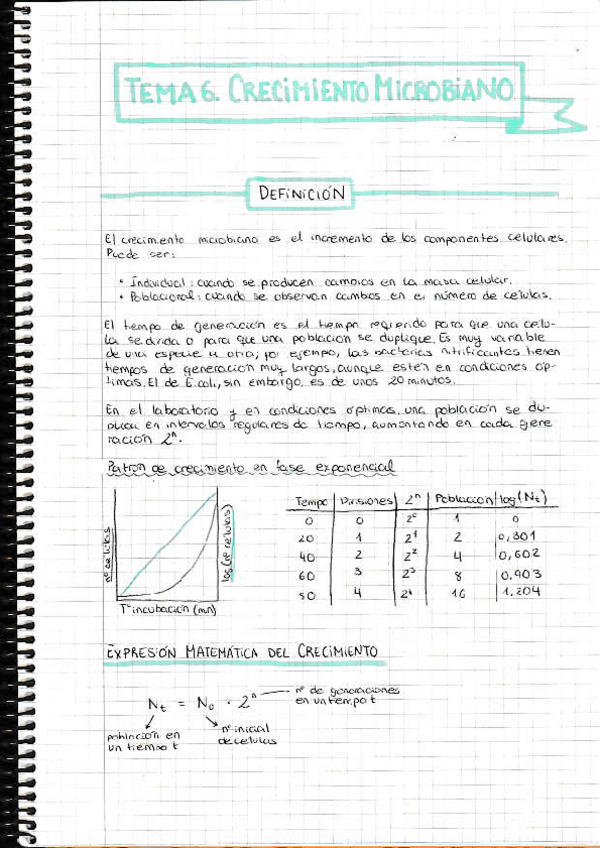 TEMA 6. CRECIMIENTO MICROBIANO
DEFINICIÓN
El crecimiento microbiano es el incremento de los componentes celulares.
Puede ser:
• Individual: cuando se producen cambios en la masa celular.
• Poblacional: cuando se observan cambios en el número de células.
El tiempo de generación es el tiempo requerido para que una célu-
la se divida o para que una población se duplique. Es muy variable
de una especie u otra; por ejemplo, las bacterias nitrificantes tienen
tiempos de generación muy largos, aunque estén en condiciones óp-
timas. El de E.coli, sin embargo, es de unos 20 minutos.
En el laboratorio y en condiciones óptimas, una población se du-
plica en intervalos regulares de tiempo, aumentando en cada gene
ración 2ⁿ.
Patrón de crecimiento en fase exponencial
nº células
log (nº células)
Tº incubación (mn)
Tiempo | Divisiones | 2ⁿ | Población | log (Nt)
0 | 0 | 2⁰ | 1 | 0
20 | 1 | 2¹ | 2 | 0,301
40 | 2 | 2² | 4 | 0,602
60 | 3 | 2³ | 8 | 0,903
80 | 4 | 2⁴ | 16 | 1,204
EXPRESIÓN MATEMÁTICA DEL CRECIMIENTO
Nt = N₀ · 2ⁿ
nº de generaciones
en un tiempo t
población en
un tiempo t
nº inicial
de células